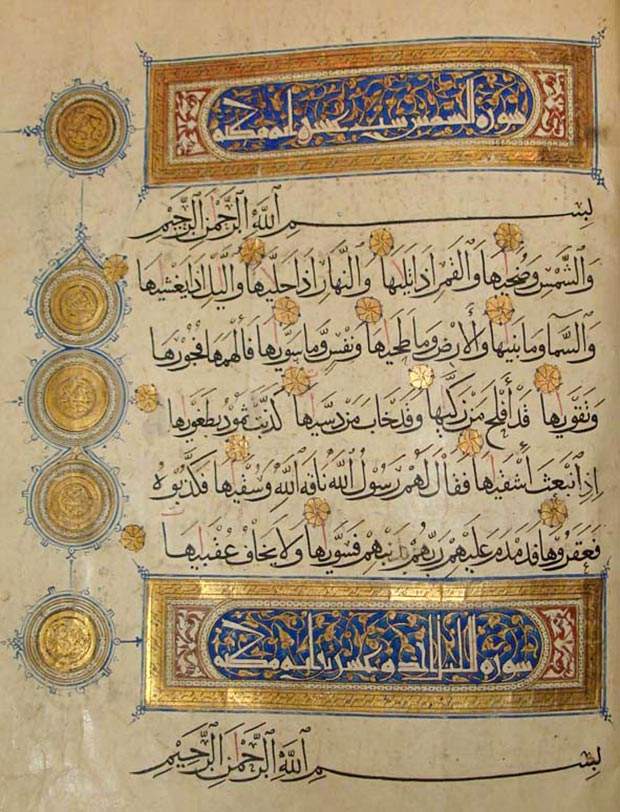 سورة الشمس ست عشر اية مكية
بِسْمِ اللَّهِ الرَّحْمَٰنِ الرَّحِيمِ
وَالشَّمْسِ وَضُحَيهَا وَالْقَمَرِ اِذَا تَلَيهَا وَالنَّهَارِ اِذَا جَلَّيهَا وَالَّيْلِ اِذَا يَغْشَيهَا
وَالسَّمَاءِ وَمَا بَنَيهَا وَالْأَرْضِ وَمَا طَحَيهَا وَنَفْسٍ وَّمَا سَوَّيهَا فَأَلْهَمَهَا فُجُورَهَا
وَتَقْوَيهَا قَدْ أَفْلَحَ مَنْ زَكَّيهَا وَقَدْ خَابَ مَنْ دَسَّيهَا كَذَّبَتْ ثَمُودُ بِطَغْوَيهَا
اِذِ انْبَعَثَ أَشْقَيهَا فَقَالَ لَهُمْ رَسُولُ اللَّهِ نَاقَةَ اللَّهِ وَسُقْيَهَا فَكَذَّبُوهُ
فَعَقَرُوهَا فَدَمْدَمَ عَلَيْهِمْ رَبُّهُمْ بِذَنْبِهِمْ فَسَوَّيهَا وَلَا يَخَافُ عُقْبَيهَا
سورة الليل وعشرين اية مكية
بِسْمِ اللَّهِ الرَّحْمَٰنِ الرَّحِيمِ